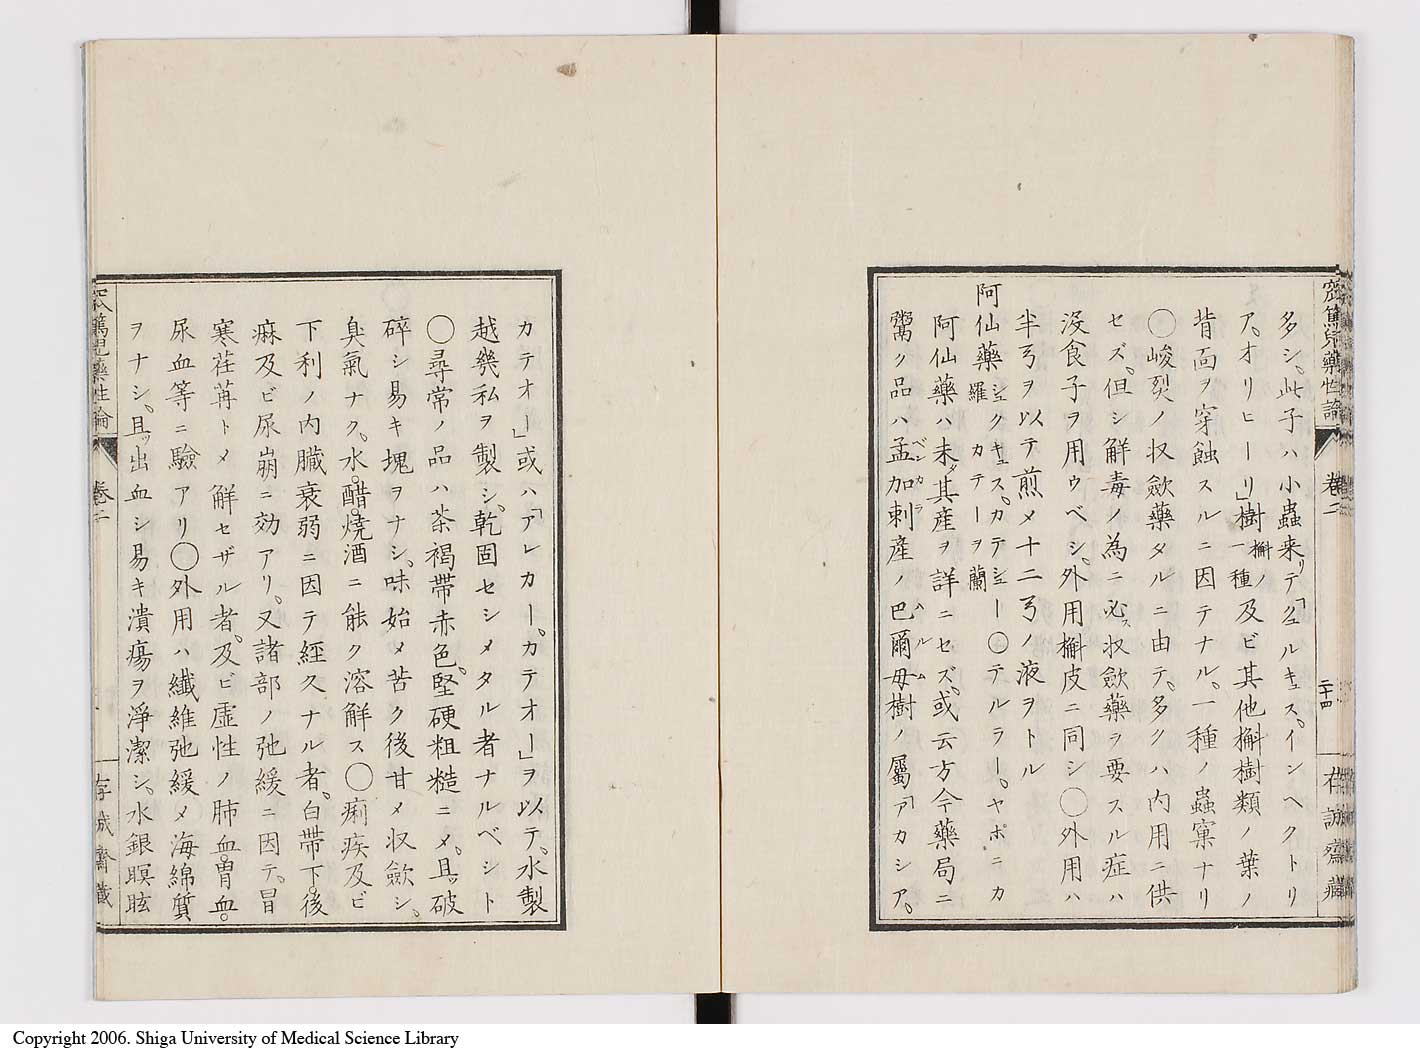 窊篤兒藥性論
卷二
二十四
存誠齋藏
多シ、此子ハ小蟲来リテ「クェルキュス、インヘクトリ
ア、オリヒーリ」樹槲ノ一種及ビ其他槲樹類ノ葉ノ
背面ヲ穿蝕スルニ因テナル、一種ノ蟲窠ナリ
〇峻烈ノ収歛藥タルニ由テ、多クハ内用ニ供
セズ、但シ解毒ノ為ニ必ス収歛藥ヲ要スル症ハ
没食子ヲ用ウベシ、外用槲皮ニ同シ〇外用ハ
半弓ヲ以テ煎メ十二弓ノ液ヲトル
阿仙藥 シェクキュス、カテシェー〇テルラー、ヤポニカ羅 カテーヲ蘭
阿仙藥ハ未タ其産ヲ詳ニセズ、或云方今藥局ニ
鬻ク品ハ孟加剌ベンカラ産ノ巴爾毋ハルム樹ノ屬「アカシア、
カテオー」或ハ「アレカー、カテオー」ヲ以テ、水製
越幾私ヲ製シ、乾固セシメタル者ナルベシト
〇尋常ノ品ハ茶褐帶赤色、堅硬粗糙ニメ、且ツ破
碎シ易キ塊ヲナシ、味始メ苦ク後甘メ収歛シ、
臭氣ナク、水、醋、焼酒ニ能ク溶解ス〇痢疾及ビ
下利ノ内臓衰弱ニ因テ經久ナル者、白帶下、後
麻及ビ尿崩ニ効アリ、又諸部ノ弛緩ニ因テ、冒
寒荏苒トメ解セザル者、及ビ虚性ノ肺血、胃血、
尿血等ニ驗アリ〇外用ハ纖維弛緩メ海綿質
ヲナシ、且ツ出血シ易キ潰瘍ヲ淨潔シ、水銀瞑眩
窊篤兒藥性論
卷二
存誠齋藏
Copyright 2006. Shiga University of Medical Science Library